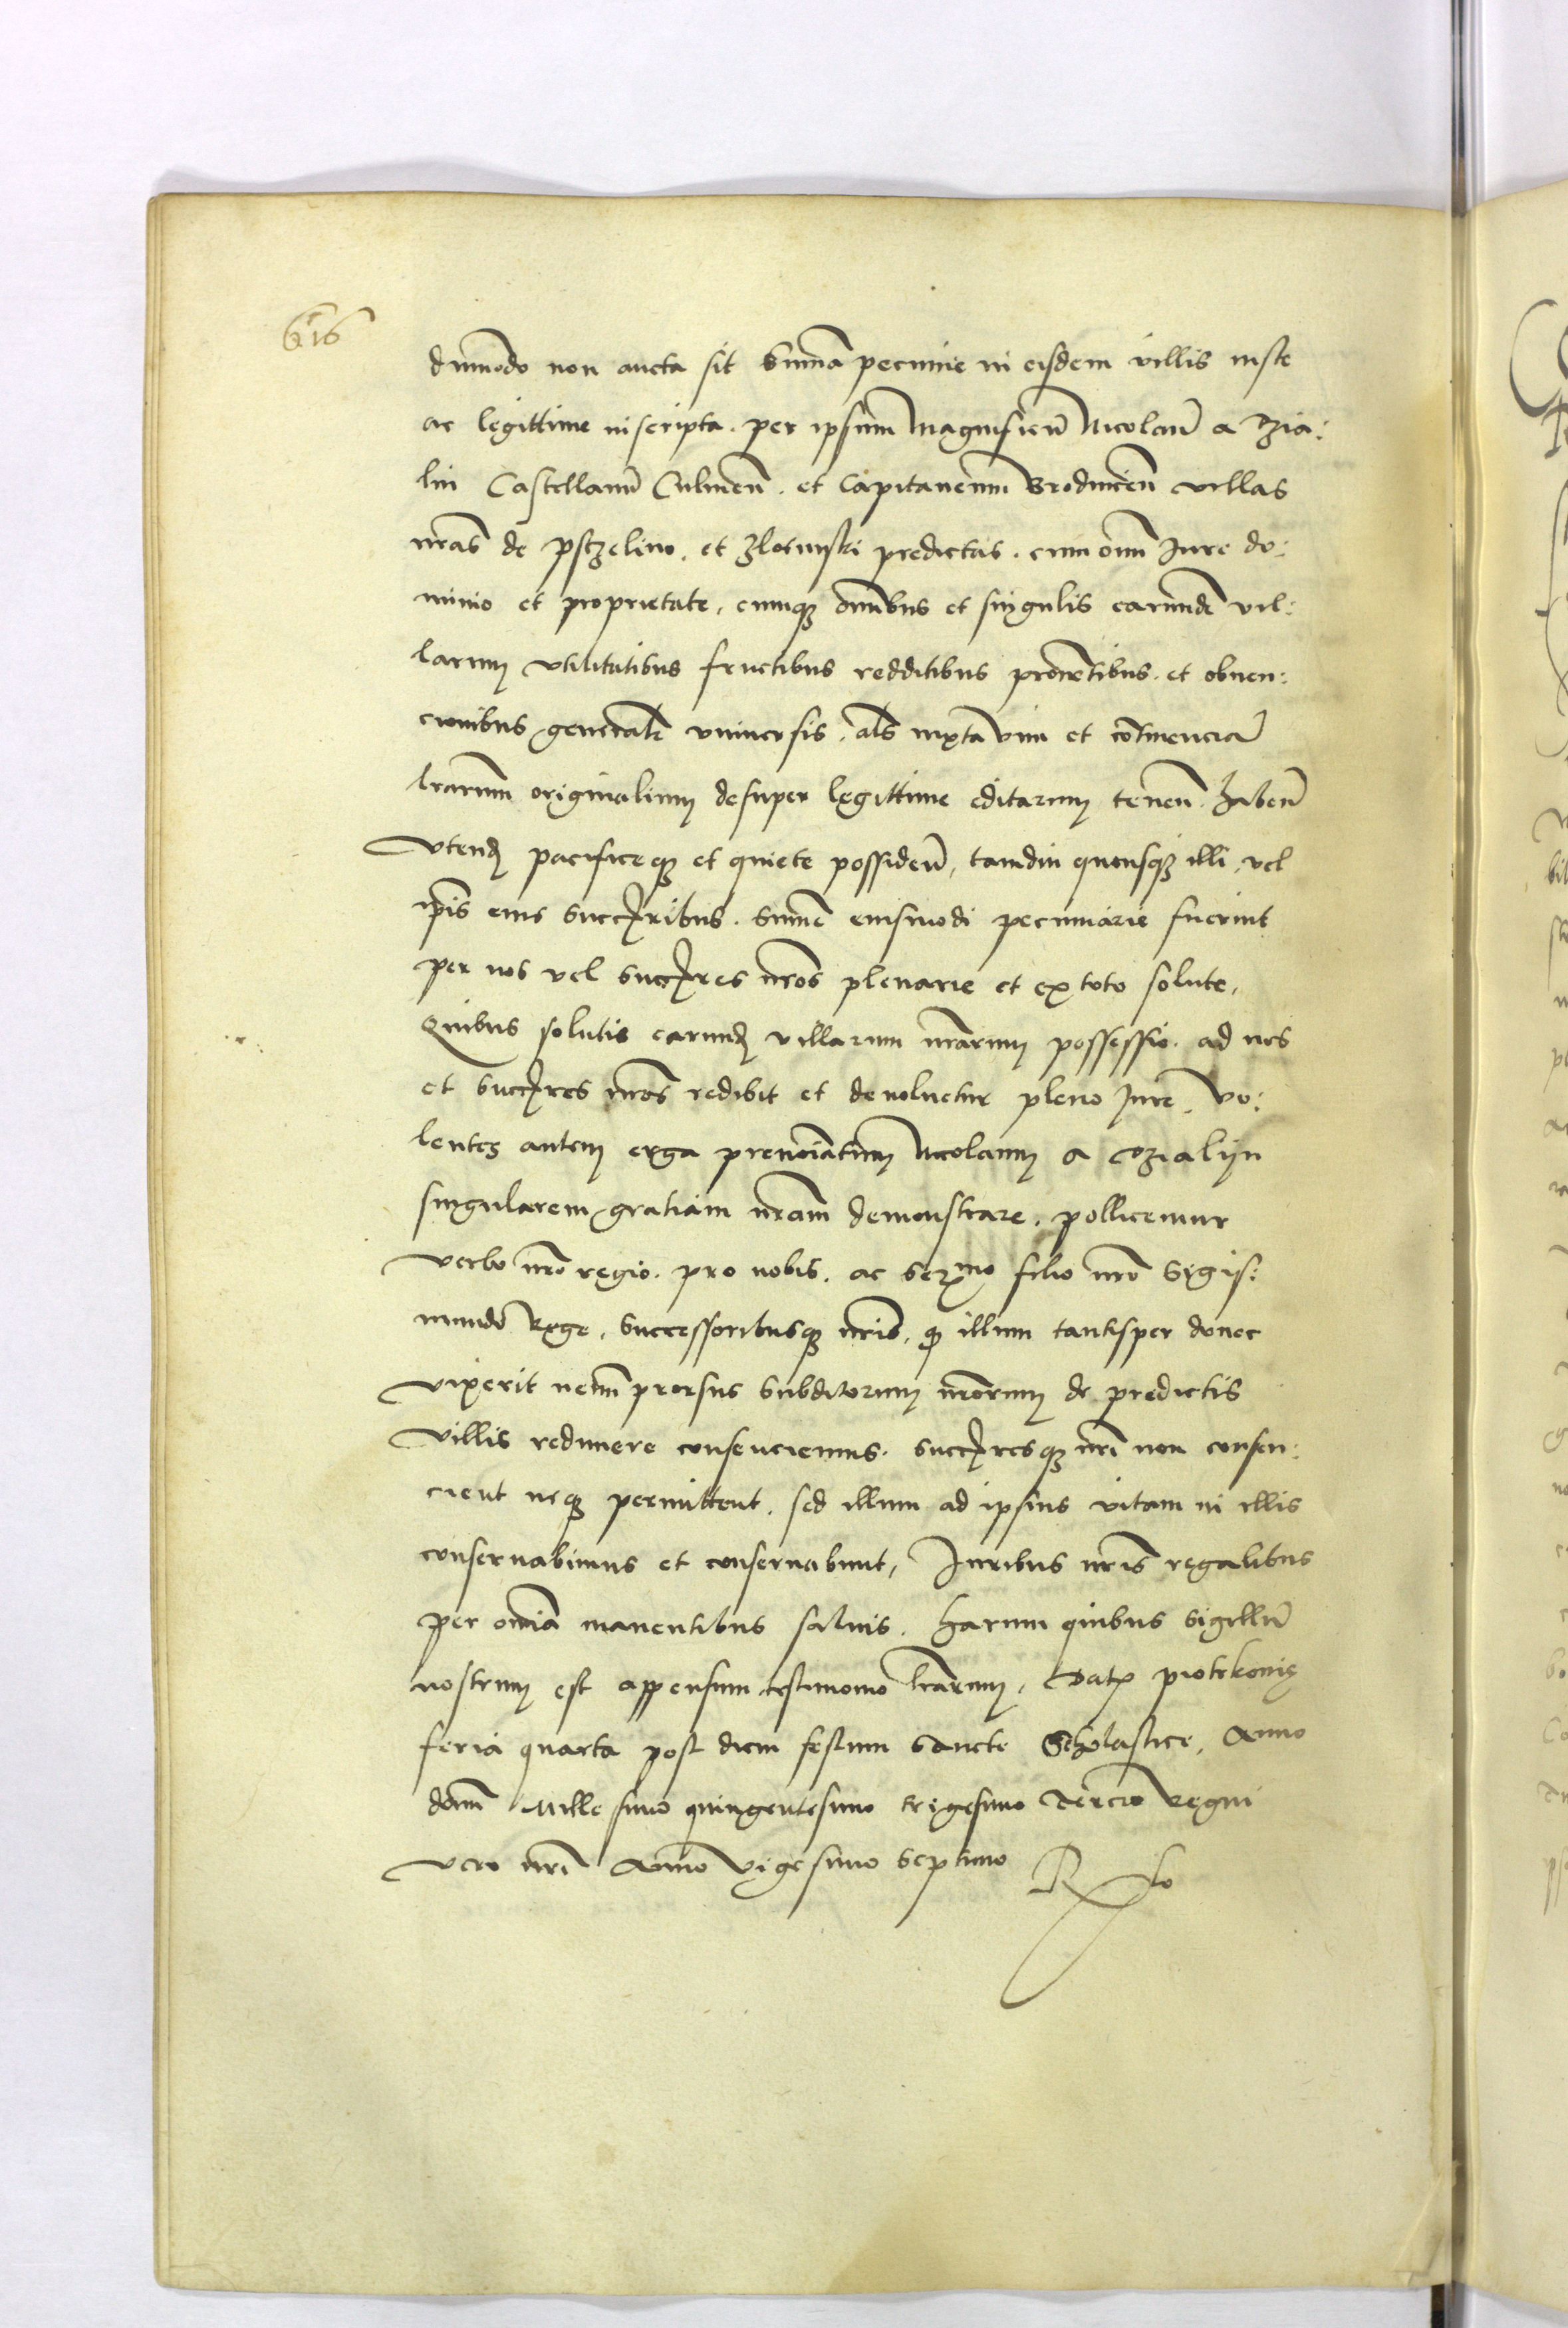 616
dummodo non aucta sit Summa pecunie in eisdem villis iuste
ac legittime inscripta. per ipsum Magnificu͂ Nicolau͂ a Dzia:
lin Castellanu͂ Culmen͂. et Capitaneum Brodnicen͂ villas
nr͂as de pstzelino. et Zlotniski predictas. cum omni Jure do:
minio et proprietate, cumqz omnibus et singulis earund͂ vil:
larum vtilitatibus fructibus redditibus prouentibus. et obuen:
cionibus generalr͂ vniuersis, als͂ iuxta vim et continencia͂
lr͂arum originalium desuper legittime editarum tenen͂. haben͂
vtend͂ pacificeqz et quiete possiden͂, tamdiu quousqz illi, vel
ipīs eius succr̄ibus. summe eiusmodi pecuniarie fuerint
per nos vel succr̄es nr͂os plenarie et ex toto solute,
Quibus solutis earund͂ villarum nr͂arum possessio. ad nos
et succr̄es nr͂os redibit et deuoluetur pleno Jure, Vo:
lentes autem erga prenoīatum Nicolaum a Dzialijn
singularem gratiam nr͂am demonstrare. pollicemur
verbo nr͂o regio. pro nobis. ac Serͫᵒ filio nr͂o Sygis:
mundo Rege, Successoribusqz nr͂is, qp illum tantisper donec
vixerit nemi͂ prorsus Subditorum nr͂orum de predictis
villis redimere consenciemus. succr̄esqz nr͂i non consen:
cient neqz permittent, sed illum ad ipsius vitam in illis
conseruabimus et conseruabunt, Juribus nr͂is regalibus
per omnia manentibus saluis. Harum quibus Sigillu͂
nostrum est appensum testimonio lr͂arum, Datͫ piotrkouie
feria quarta post diem festum sancte Scholastice, Anno
domi͂ Millesimo quingentesimo trigesimo Tercio Regni
vero nr͂i Anno Vigesimo Septimo